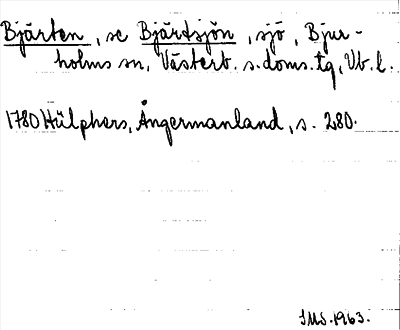 Bjärten, se Bjärtsjön, sjö, Bjur-
holms sn, Västerb. s. doms. tg, Vb. l.
1780 Hülphers, Ångermanland, s. 280.
IMS. 1963.